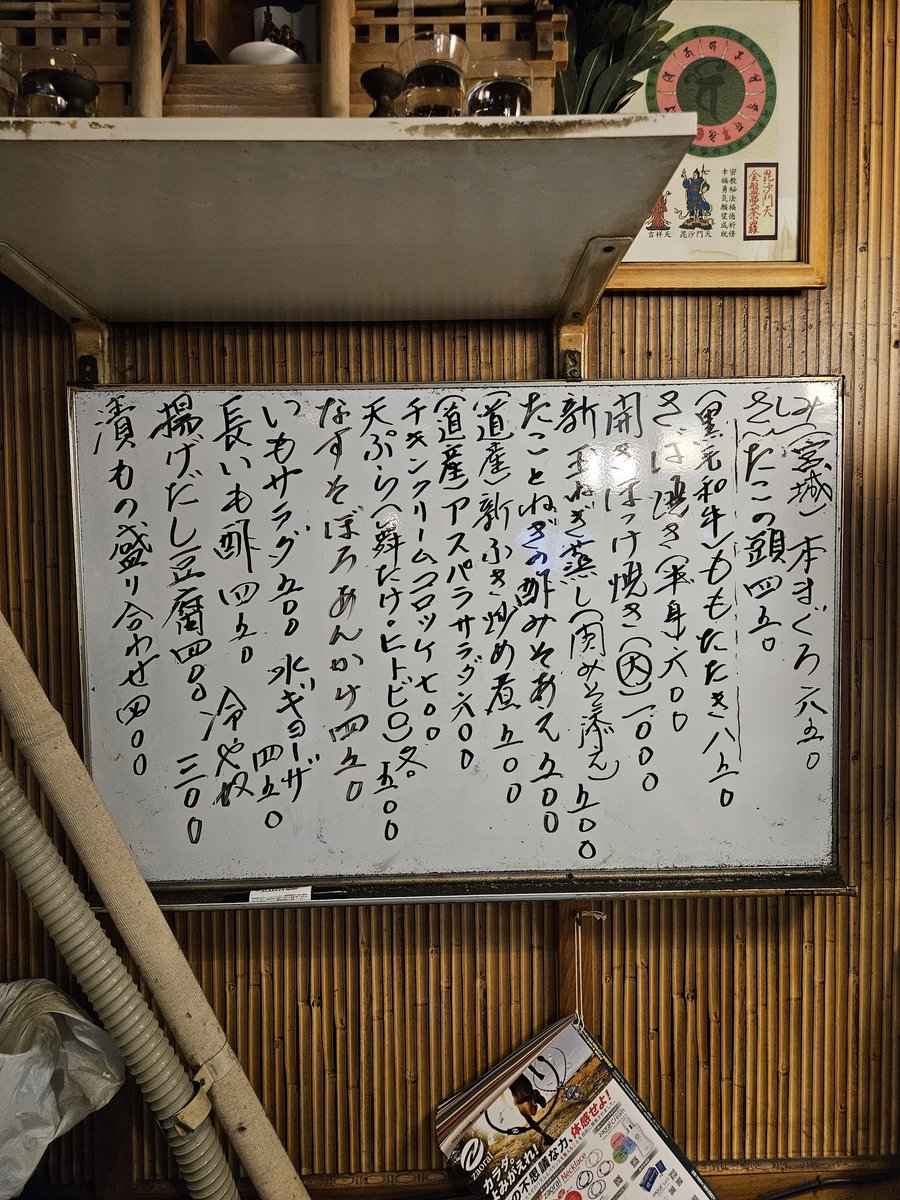 さしみ
(宮城)本まぐろ 六五〇
たこの頭 四五〇
(黒毛和牛)ももたたき 八五〇
さば焼き(半身)六〇〇
開きほっけ焼き(大)一〇〇〇
新玉ねぎ蒸し(肉みそ添え)五〇〇
たことねぎの酢みそあえ 五〇〇
(道産)新ふき炒め煮 五〇〇
(道産)アスパラサラダ 六〇〇
チキンクリームコロッケ 七〇〇
天ぷら(舞たけ・ヒトビロ)各。五〇〇
なすそぼろあんかけ 四五〇
いもサラダ 五〇〇
水ギョーザ 四五〇
長いも酢 四五〇
冷や奴 三〇〇
揚げだし豆腐 四〇〇
漬もの盛り合わせ 四〇〇
毘沙門天
金盤曼荼羅
密教秘法福徳祈修
幸福勇気願望成就
毘沙門天
吉祥天
zaoral
カラダ、
よみがえれ!
の不思議な力、体感せよ!
zaoral Necklace
zaoral Cream